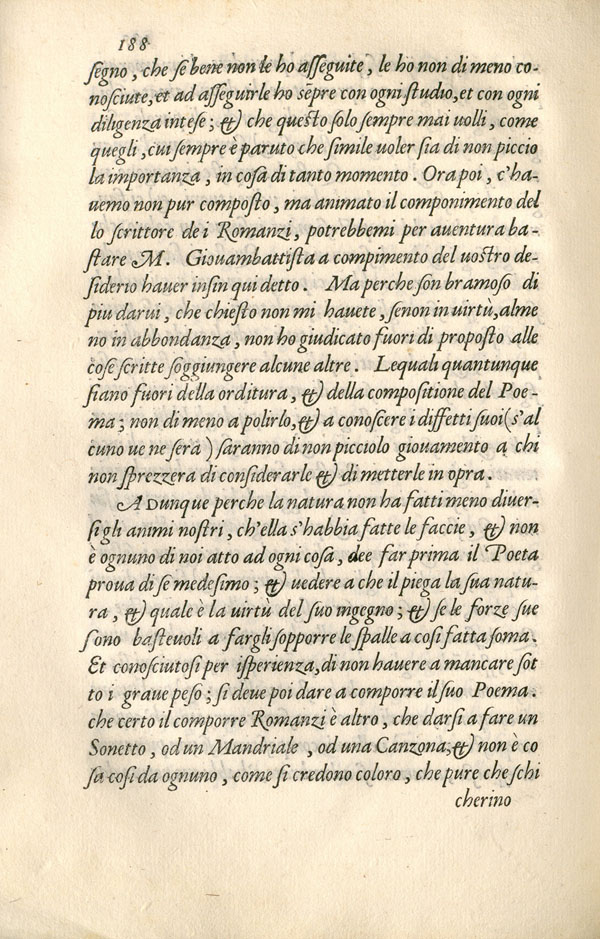 188
segno, che se bene non le ho asseguite, le ho non di meno co-
nosciute, et ad asseguirle ho sẽpre con ogni studio, et con ogni
diligenza intese; & che questo solo sempre mai uolli, come
quegli, cui sempre è paruto che simile uoler sia di non piccio
la importanza, in cosa di tanto momento. Ora poi, c'ha-
uemo non pur composto, ma animato il componimento del
lo scrittore de i Romanzi, potrebbemi per auentura ba-
stare M. Giouambattista a compimento del uostro de-
siderio hauer insin qui detto. Ma perche son bramoso di
piu darui, che chiesto non mi hauete, senon in uirtù, alme
no in abbondanza, non ho giudicato fuori di proposto alle
cose scritte soggiungere alcune altre. Lequali quantunque
siano fuori della orditura, & della compositione del Poe-
ma; non di meno a polirlo, & a conoscere i diffetti suoi (s'al
cuno ue ne sera) saranno di non picciolo giouamento a chi
non sprezzera di considerarle & di metterle in opra.
ADunque perche la natura non ha fatti meno diuer-
si gli animi nostri, ch'ella s'habbia fatte le faccie, & non
è ognuno di noi atto ad ogni cosa, dee far prima il Poeta
proua di se medesimo; & uedere a che il piega la sua natu-
ra, & quale è la uirtù del suo ingegno; & se le forze sue
sono basteuoli a fargli sopporre le spalle a cosi fatta soma.
Et conosciutosi per isperienza, di non hauere a mancare sot
to i graue peso; si deue poi dare a comporre il suo Poema.
che certo il comporre Romanzi è altro, che darsi a fare un
Sonetto, od un Mandriale, od una Canzona, & non è co
sa cosi da ognuno, come si credono coloro, che pure che schi
cherino